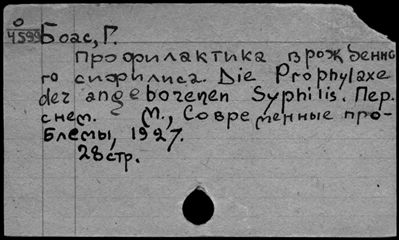 0
4599
Боас, Г.
Профилактика врожденно
го сифилиса. Die Prophylaxe
der angeborenen Syphilis. Пер.
с нем. М., Современные про-
блемы, 1927.
28стр.